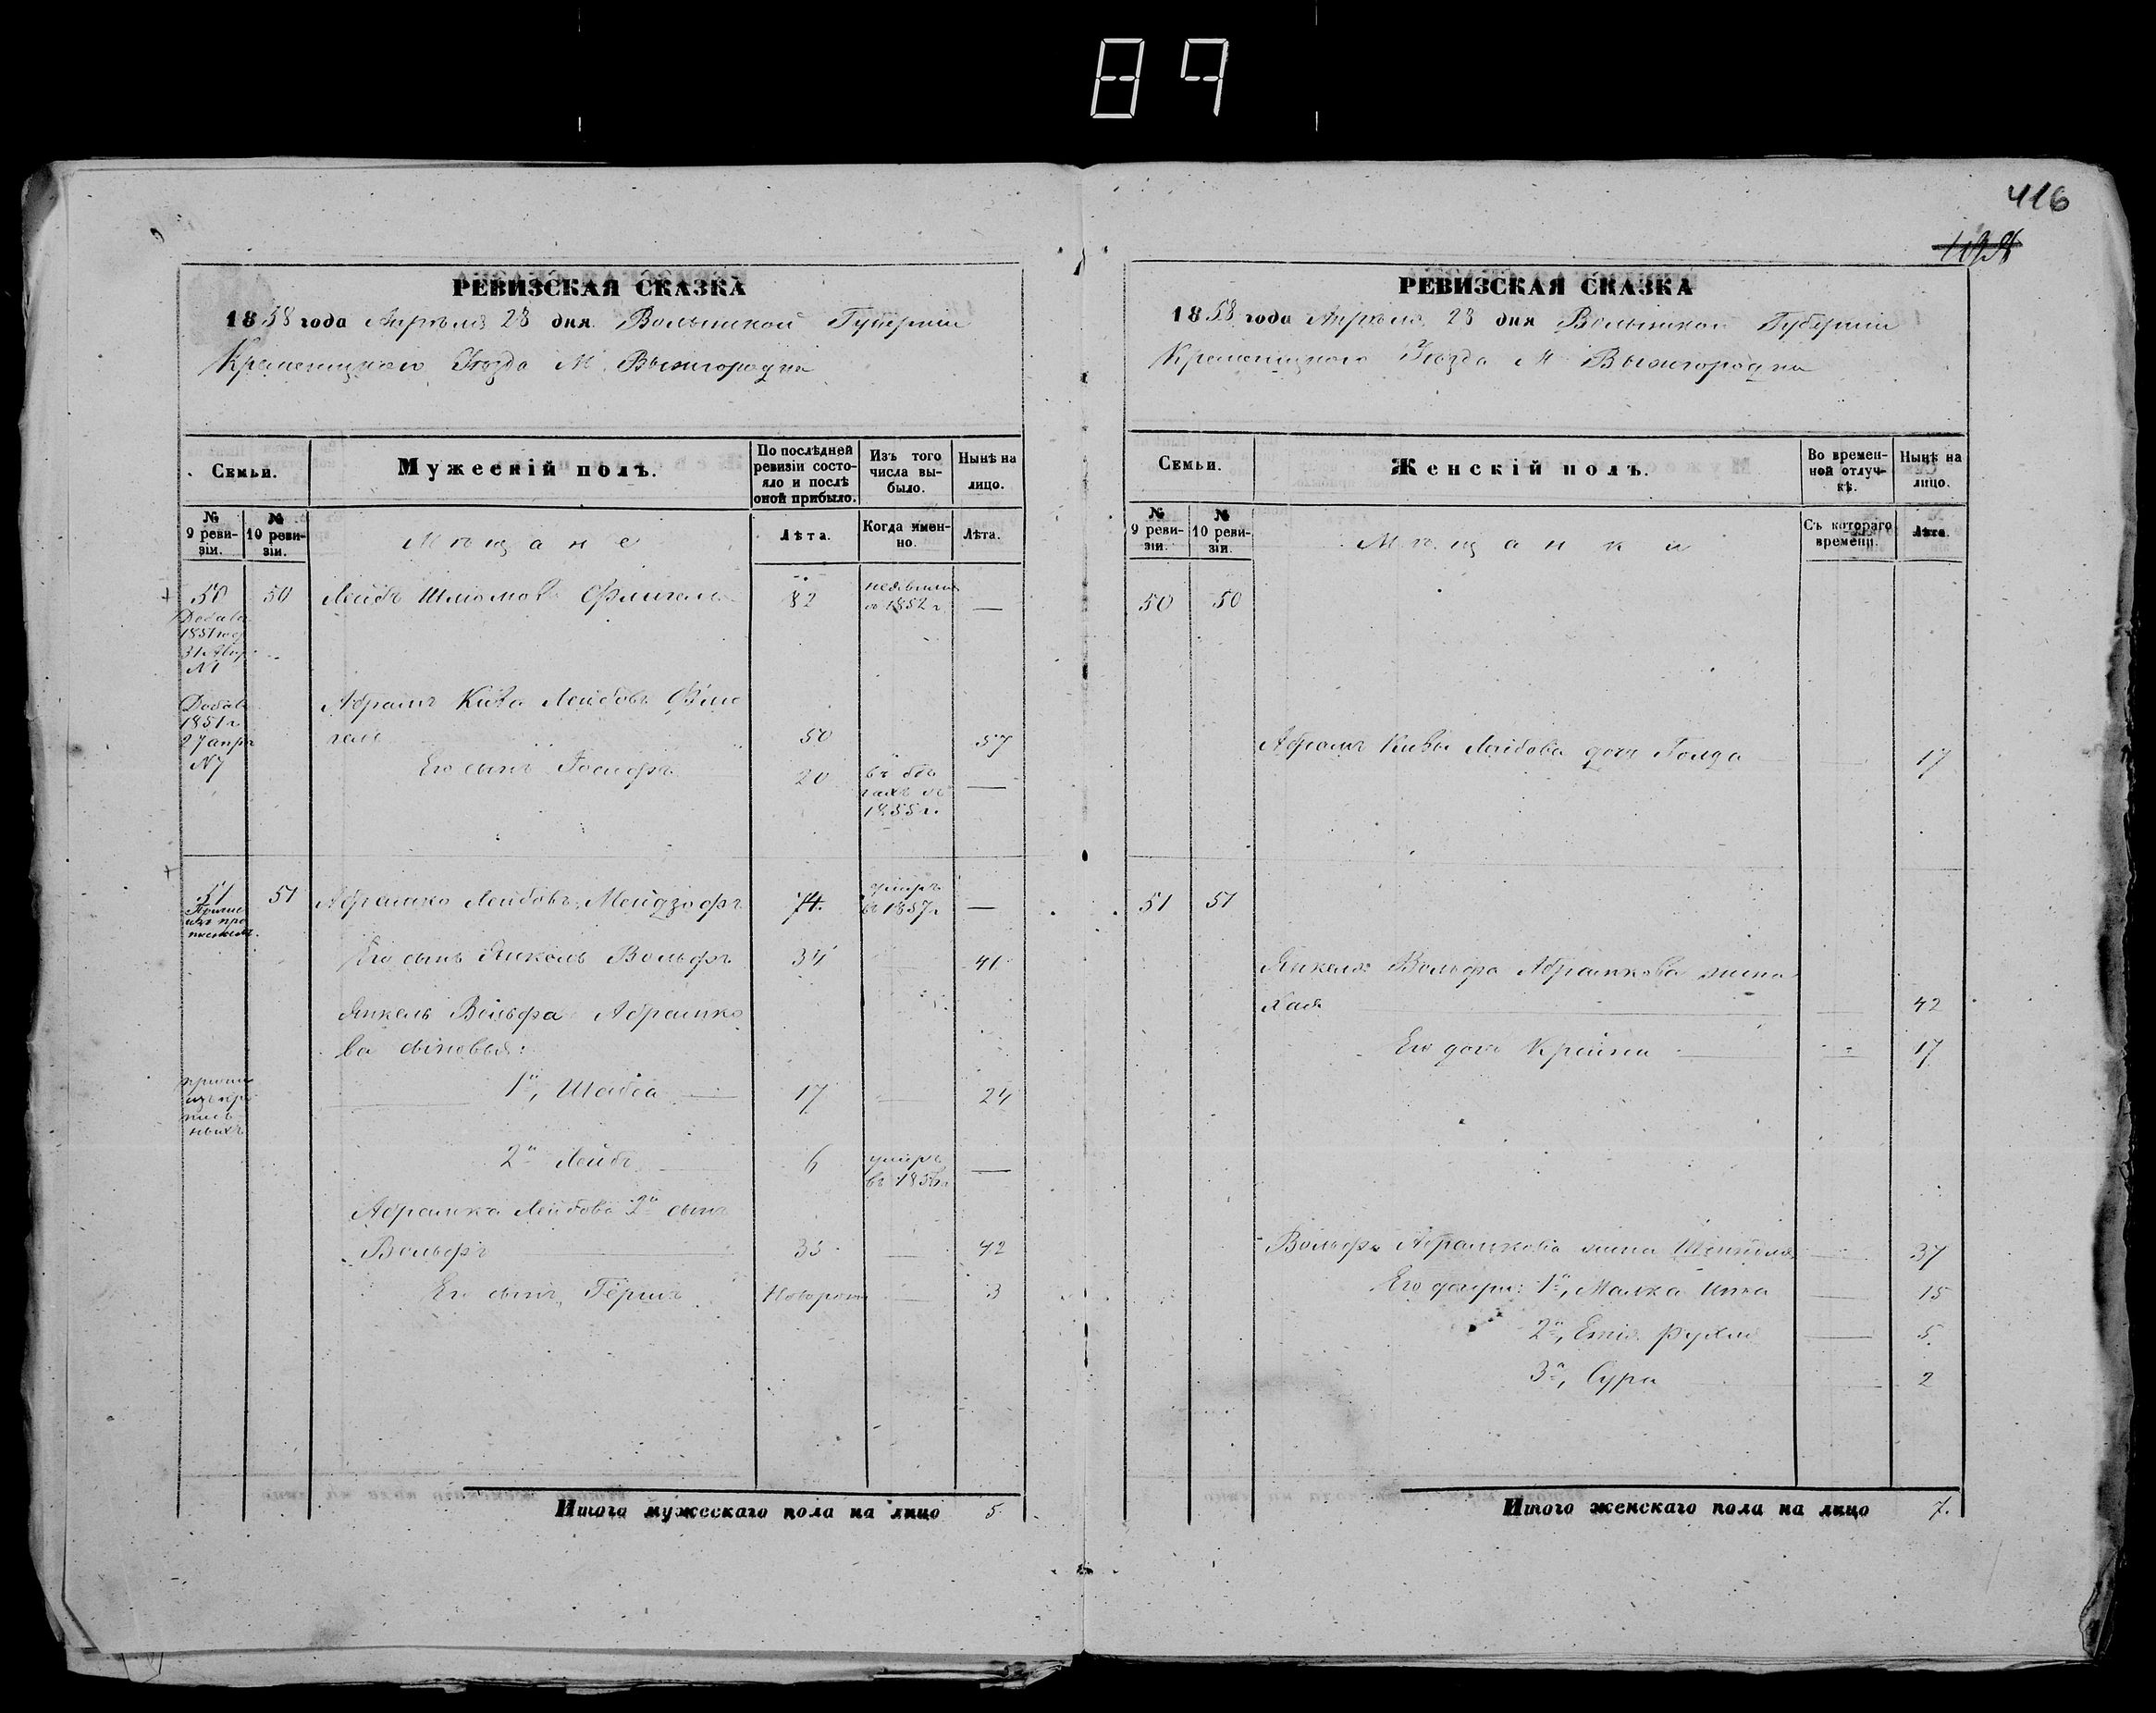 89
416
РЕВИЗСКАЯ СКАЗКА
1858 года Апрѣля 28 дня Волынской Губерніи
Кременецкаго Уѣзда М. Вышгородка
Семьи.
Мужескій полъ.
По послѣдней ревизіи состояло и послѣ оной прибыло.
Изъ того числа выбыло.
Нынѣ на лицо.
№ 9 ревизіи.
№ 10 ревизіи.
Мѣщане
Лѣта.
Когда именно.
Лѣта.
50 50 Лейбъ Шлiомовъ Флигель 82 въ 1852 г. —
1851 год
31
№1
Добав
1851 г
27 апрѣ
№7
Абрамъ Кива Лейбовъ Фли
гель 50 57
Его сынъ Іосифъ 20 въ бѣгахъ съ 1855 г. —
51 51 Абрамко Лейбовъ 74 умеръ въ 1857 г —
Его сынъ Янкель Вольфъ 34 — 41
Янкель Вольфа Абрамко
ва сыновья:
1й, Шабса 17 — 24
2й Лейбъ 6 умеръ —
Абрамка Лейбова 2й сынъ
Вольфъ 35 — 42
Его сынъ Гершъ Новорож — 3
Итого мужескаго пола на лицо 5
РЕВИЗСКАЯ СКАЗКА
1858 года Апрѣля 28 дня Волынской Губерніи
Кременецкаго Уѣзда М Вышгородка
Семьи.
Женскій полъ.
Во временной отлучкѣ.
Нынѣ на лицо.
№ 9 ревизіи.
№ 10 ревизіи.
Мѣщанки
Съ котораго времени.
Лѣта.
50 50
Абрамъ Кивы Лейбова дочь Голда — 17
51 51
Янкеля Вольфа Абрамкова жена
Хая — 42
Его дочь Крейна — 17
Вольфа Абрамкова жена — 37
Его дочери: 1я, Малка — 15
2я, Рухля — 5
3я, Сура — 2
Итого женскаго пола на лицо 7.